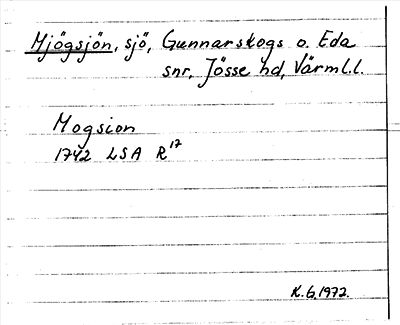 Mjögsjön, sjö, Gunnarskogs o. Eda
snr, Jösse hd, Värml.l.
Mogsion
1742 LSA R17
K.G. 1972.